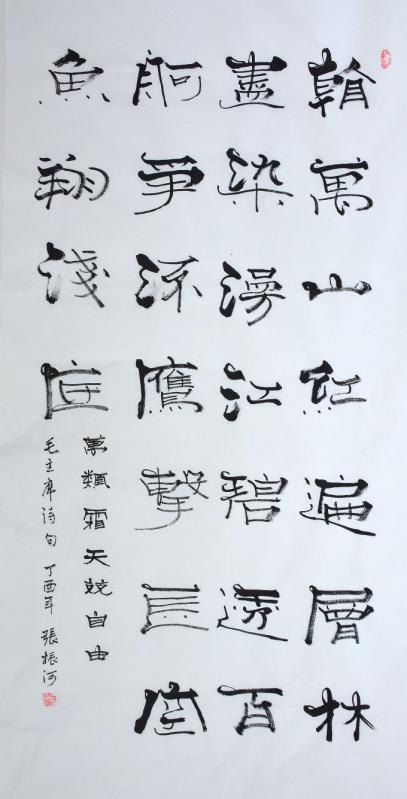 看萬山紅遍層林
盡染漫江碧透百
舸爭流鷹擊長空
魚翔淺底
萬類霜天競自由
毛主席诗句 丁酉年 張振河